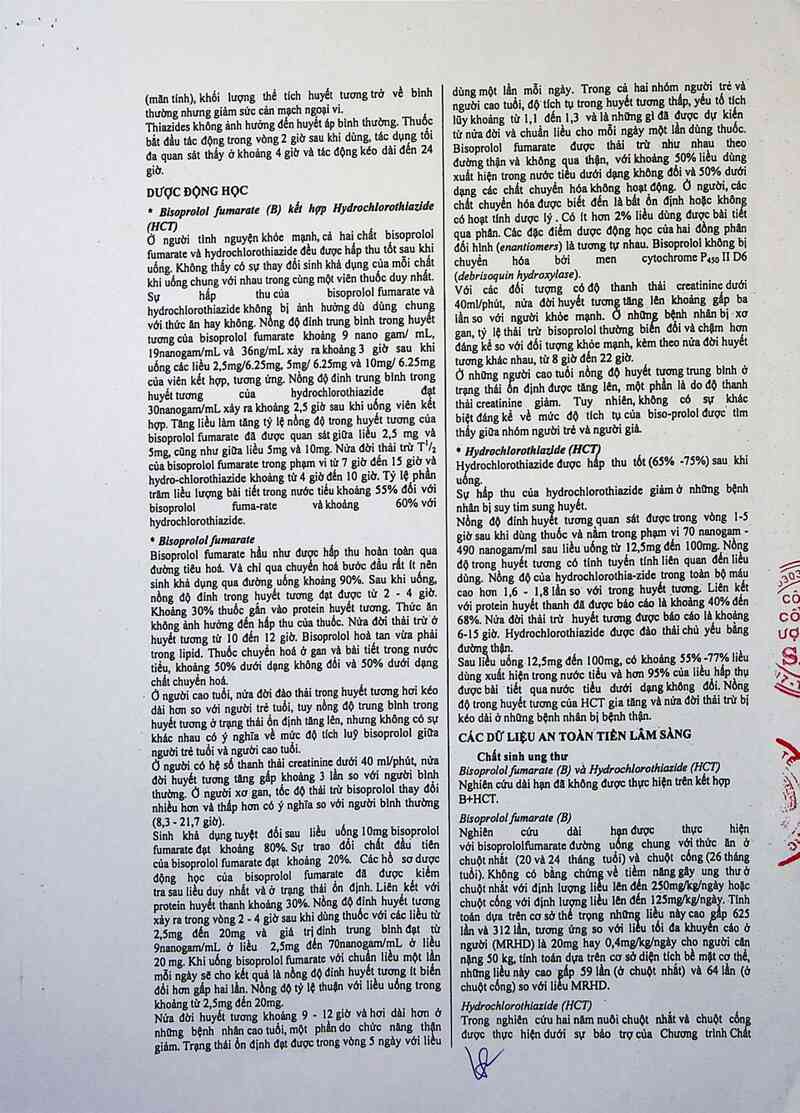 (mãn tính), khối lượng thể tích huyết tương trở về bình
thường nhưng giảm sức cản mạch ngoại vi.
Thiazides không ảnh hưởng đến huyết áp bình thường. Thuốc
bắt đầu tác động trong vòng 2 giờ sau khi dùng, tác dụng tối
đa quan sát thấy ở khoảng 4 giờ và tác động kéo dài đến 24
giờ.
DƯỢC ĐỘNG HỌC
* Bisoprolol fumarate (B) kết hợp Hydrochlorothiazide
(HCT)
Ở người tình nguyện khỏe mạnh, cả hai chất bisoprolol
fumarate và hydrochlorothiazide đều được hấp thu tốt sau khi
uống. Không thấy có sự thay đổi sinh khả dụng của mỗi chất
khi uống chung với nhau trong cùng một viên thuốc duy nhất.
Sự hấp thu của bisoprolol fumarate và
hydrochlorothiazide không bị ảnh hưởng dù dùng chung
với thức ăn hay không. Nồng độ đỉnh trung bình trong huyết
tương của bisoprolol fumarate khoảng 9 nano gam/ mL,
19nanogam/mL và 36ng/mL xảy ra khoảng 3 giờ sau khi
uống các liều 2,5mg/6.25mg, 5mg/ 6.25mg và 10mg/ 6.25mg
của viên kết hợp, tương ứng. Nồng độ đỉnh trung bình trong
huyết tương của hydrochlorothiazide đạt
30nanogam/mL xảy ra khoảng 2,5 giờ sau khi uống viên kết
hợp. Tăng liều làm tăng tỷ lệ nồng độ trong huyết tương của
bisoprolol fumarate đã được quan sát giữa liều 2,5 mg và
5mg, cũng như giữa liều 5mg và 10mg. Nửa đời thải trừ T1/2
của bisoprolol fumarate trong phạm vi từ 7 giờ đến 15 giờ và
hydro-chlorothiazide khoảng từ 4 giờ đến 10 giờ. Tỷ lệ phần
trăm liều lượng bài tiết trong nước tiểu khoảng 55% đối với
bisoprolol fuma-rate và khoảng 60% với
hydrochlorothiazide.
* Bisoprolol fumarate
Bisoprolol fumarate hầu như được hấp thu hoàn toàn qua
đường tiêu hoá. Và chỉ qua chuyển hoá bước đầu rất ít nên
sinh khả dụng qua đường uống khoảng 90%. Sau khi uống,
nồng độ đỉnh trong huyết tương đạt được từ 2 - 4 giờ.
Khoảng 30% thuốc gắn vào protein huyết tương. Thức ăn
không ảnh hưởng đến hấp thu của thuốc. Nửa đời thải trừ ở
huyết tương từ 10 đến 12 giờ. Bisoprolol hoà tan vừa phải
trong lipid. Thuốc chuyển hoá ở gan và bài tiết trong nước
tiểu, khoảng 50% dưới dạng không đổi và 50% dưới dạng
chất chuyển hoá.
Ở người cao tuổi, nửa đời đào thải trong huyết tương hơi kéo
dài hơn so với người trẻ tuổi, tuy nồng độ trung bình trong
huyết tương ở trạng thái ổn định tăng lên, nhưng không có sự
khác nhau có ý nghĩa về mức độ tích luỹ bisoprolol giữa
người trẻ tuổi và người cao tuổi.
Ở người có hệ số thanh thải creatinine dưới 40 ml/phút, nửa
đời huyết tương tăng gấp khoảng 3 lần so với người bình
thường. Ở người xơ gan, tốc độ thải trừ bisoprolol thay đổi
nhiều hơn và thấp hơn có ý nghĩa so với người bình thường
(8,3 - 21,7 giờ).
Sinh khả dụng tuyệt đối sau liều uống 10mg bisoprolol
fumarate đạt khoảng 80%. Sự trao đổi chất đầu tiên
của bisoprolol fumarate đạt khoảng 20%. Các hồ sơ dược
động học của bisoprolol fumarate đã được kiểm
tra sau liều duy nhất và ở trạng thái ổn định. Liên kết với
protein huyết thanh khoảng 30%. Nồng độ đỉnh huyết tương
xảy ra trong vòng 2 - 4 giờ sau khi dùng thuốc với các liều từ
2,5mg đến 20mg và giá trị đỉnh trung bình đạt từ
9nanogam/mL ở liều 2,5mg đến 70nanogam/mL ở liều
20 mg. Khi uống bisoprolol fumarate với chuẩn liều một lần
mỗi ngày sẽ cho kết quả là nồng độ đỉnh huyết tương ít biến
đổi hơn gấp hai lần. Nồng độ tỷ lệ thuận với liều uống trong
khoảng từ 2,5mg đến 20mg.
Nửa đời huyết tương khoảng 9 - 12 giờ và hơi dài hơn ở
những bệnh nhân cao tuổi, một phần do chức năng thận
giảm. Trạng thái ổn định đạt được trong vòng 5 ngày với liều
dùng một lần mỗi ngày. Trong cả hai nhóm người trẻ và
người cao tuổi, độ tích tụ trong huyết tương thấp, yếu tố tích
lũy khoảng từ 1,1 đến 1,3 và là những gì đã được dự kiến
từ nửa đời và chuẩn liều cho mỗi ngày một lần dùng thuốc.
Bisoprolol fumarate được thải trừ như nhau theo
đường thận và không qua thận, với khoảng 50% liều dùng
xuất hiện trong nước tiểu dưới dạng không đổi và 50% dưới
dạng các chất chuyển hóa không hoạt động. Ở người, các
chất chuyển hóa được biết đến là bất ổn định hoặc không
có hoạt tính dược lý . Có ít hơn 2% liều dùng được bài tiết
qua phân. Các đặc điểm dược động học của hai đồng phân
đối hình (enantiomers) là tương tự nhau. Bisoprolol không bị
chuyển hóa bởi men cytochrome P450 II D6
(debrisoquin hydroxylase).
Với các đối tượng có độ thanh thải creatinine dưới
40ml/phút, nửa đời huyết tương tăng lên khoảng gấp ba
lần so với người khỏe mạnh. Ở những bệnh nhân bị xơ
gan, tỷ lệ thải trừ bisoprolol thường biến đổi và chậm hơn
đáng kể so với đối tượng khỏe mạnh, kèm theo nửa đời huyết
tương khác nhau, từ 8 giờ đến 22 giờ.
Ở những người cao tuổi nồng độ huyết tương trung bình ở
trạng thái ổn định được tăng lên, một phần là do độ thanh
thải creatinine giảm. Tuy nhiên, không có sự khác
biệt đáng kể về mức độ tích tụ của biso-prolol được tìm
thấy giữa nhóm người trẻ và người già.
* Hydrochlorothiazide (HCT)
Hydrochlorothiazide được hấp thu tốt (65% -75%) sau khi
uống.
Sự hấp thu của hydrochlorothiazide giảm ở những bệnh
nhân bị suy tim sung huyết.
Nồng độ đỉnh huyết tương quan sát được trong vòng 1-5
giờ sau khi dùng thuốc và nằm trong phạm vi 70 nanogam -
490 nanogam/ml sau liều uống từ 12,5mg đến 100mg. Nồng
độ trong huyết tương có tính tuyến tính liên quan đến liều
dùng. Nồng độ của hydrochlorothia-zide trong toàn bộ máu
cao hơn 1,6 - 1,8 lần so với trong huyết tương. Liên kết
với protein huyết thanh đã được báo cáo là khoảng 40% đến
68%. Nửa đời thải trừ huyết tương được báo cáo là khoảng
6-15 giờ. Hydrochlorothiazide được đào thải chủ yếu bằng
đường thận.
Sau liều uống 12,5mg đến 100mg, có khoảng 55% -77% liều
dùng xuất hiện trong nước tiểu và hơn 95% của liều hấp thụ
được bài tiết qua nước tiểu dưới dạng không đổi. Nồng
độ trong huyết tương của HCT gia tăng và nửa đời thải trừ bị
kéo dài ở những bệnh nhân bị bệnh thận.
CÁC DỮ LIỆU AN TOÀN TIỀN LÂM SÀNG
Chất sinh ung thư
Bisoprolol fumarate (B) và Hydrochlorothiazide (HCT)
Nghiên cứu dài hạn đã không được thực hiện trên kết hợp
B+HCT.
Bisoprolol fumarate (B)
Nghiên cứu dài hạn được thực hiện
với bisoprololfumarate đường uống chung với thức ăn ở
chuột nhắt (20 và 24 tháng tuổi) và chuột cống (26 tháng
tuổi). Không có bằng chứng về tiềm năng gây ung thư ở
chuột nhắt với định lượng liều lên đến 250mg/kg/ngày hoặc
chuột cống với định lượng liều lên đến 125mg/kg/ngày. Tính
toán dựa trên cơ sở thể trọng những liều này cao gấp 625
lần và 312 lần, tương ứng so với liều tối đa khuyến cáo ở
người (MRHD) là 20mg hay 0,4mg/kg/ngày cho người cân
nặng 50 kg, tính toán dựa trên cơ sở diện tích bề mặt cơ thể,
những liều này cao gấp 59 lần (ở chuột nhắt) và 64 lần (ở
chuột cống) so với liều MRHD.
Hydrochlorothiazide (HCT)
Trong nghiên cứu hai năm nuôi chuột nhắt và chuột cống
được thực hiện dưới sự bảo trợ của Chương trình Chất